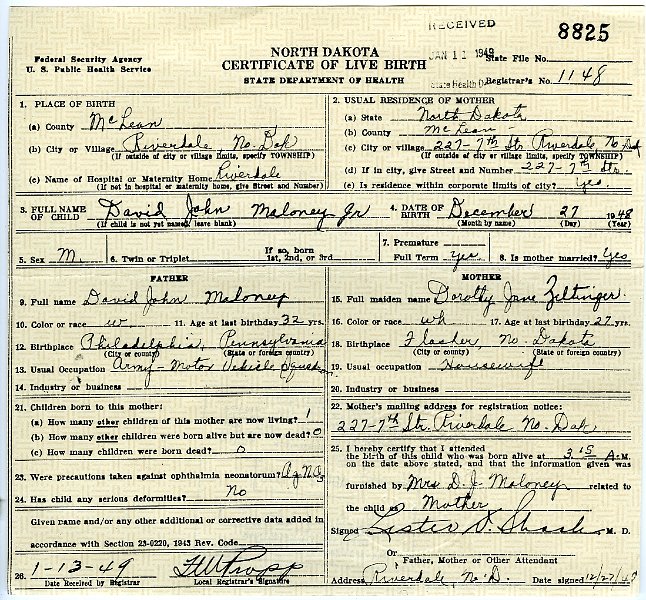 RECEIVED
8825
JAN 11 1949
State Health D
NORTH DAKOTA
CERTIFICATE OF LIVE BIRTH
STATE DEPARTMENT OF HEALTH
Federal Security Agency
U. S. Public Health Service
State File No.
Registrar's No. 1148
1. PLACE OF BIRTH
(a) County McLean
(b) City or Village Riverdale, No. Dak
(If outside of city or village limits, specify TOWNSHIP)
(c) Name of Hospital or Maternity Home Riverdale
(If not in hospital or maternity home, give Street and Number)
2. USUAL RESIDENCE OF MOTHER
(a) State North Dakota
(b) County McLean
(c) City or village 227-7th Str. Riverdale, No Dak
(If outside of city or village limits, specify TOWNSHIP)
(d) If in city, give Street and Number 227-7th Str.
(e) Is residence within corporate limits of city? Yes
3. FULL NAME OF CHILD David John Maloney Jr
(If child is not yet named, leave blank)
4. DATE OF BIRTH December 27 1948
(Month by name) (Day) (Year)
5. Sex M. 6. Twin or Triplet If so, born 1st, 2nd, or 3rd
7. Premature
Full Term Yes 8. Is mother married? Yes
FATHER
9. Full name David John Maloney
10. Color or race w 11. Age at last birthday 32 yrs.
12. Birthplace Philadelphia, Pennsylvania
(City or county) (State or foreign country)
13. Usual Occupation Army - Motor Vehicle Squadron
14. Industry or business
MOTHER
15. Full maiden name Dorothy Jane Zeltinger
16. Color or race wh 17. Age at last birthday 27 yrs.
18. Birthplace Flasher, No. Dakota
(City or county) (State or foreign country)
19. Usual occupation Housewife
20. Industry or business
21. Children born to this mother:
(a) How many other children of this mother are now living? 1
(b) How many other children were born alive but are now dead? 0
(c) How many children were born dead? 0
22. Mother's mailing address for registration notice:
227-7th Str. Riverdale No. Dak
23. Were precautions taken against ophthalmia neonatorum?
24. Has child any serious deformities? No
Given name and/or any other additional or corrective data added in
accordance with Section 23-0220, 1943 Rev. Code
25. I hereby certify that I attended
the birth of this child who was born alive at 3:15 A.M.
on the date above stated, and that the information given was
furnished by Mrs D. J. Maloney related to
the child as Mother
Signed Lester M. D.
Or
Father, Mother or Other Attendant
Address Riverdale, No. D. Date signed 12/27/48
26. 1-13-49
Date Received by Registrar Local Registrar's Signature